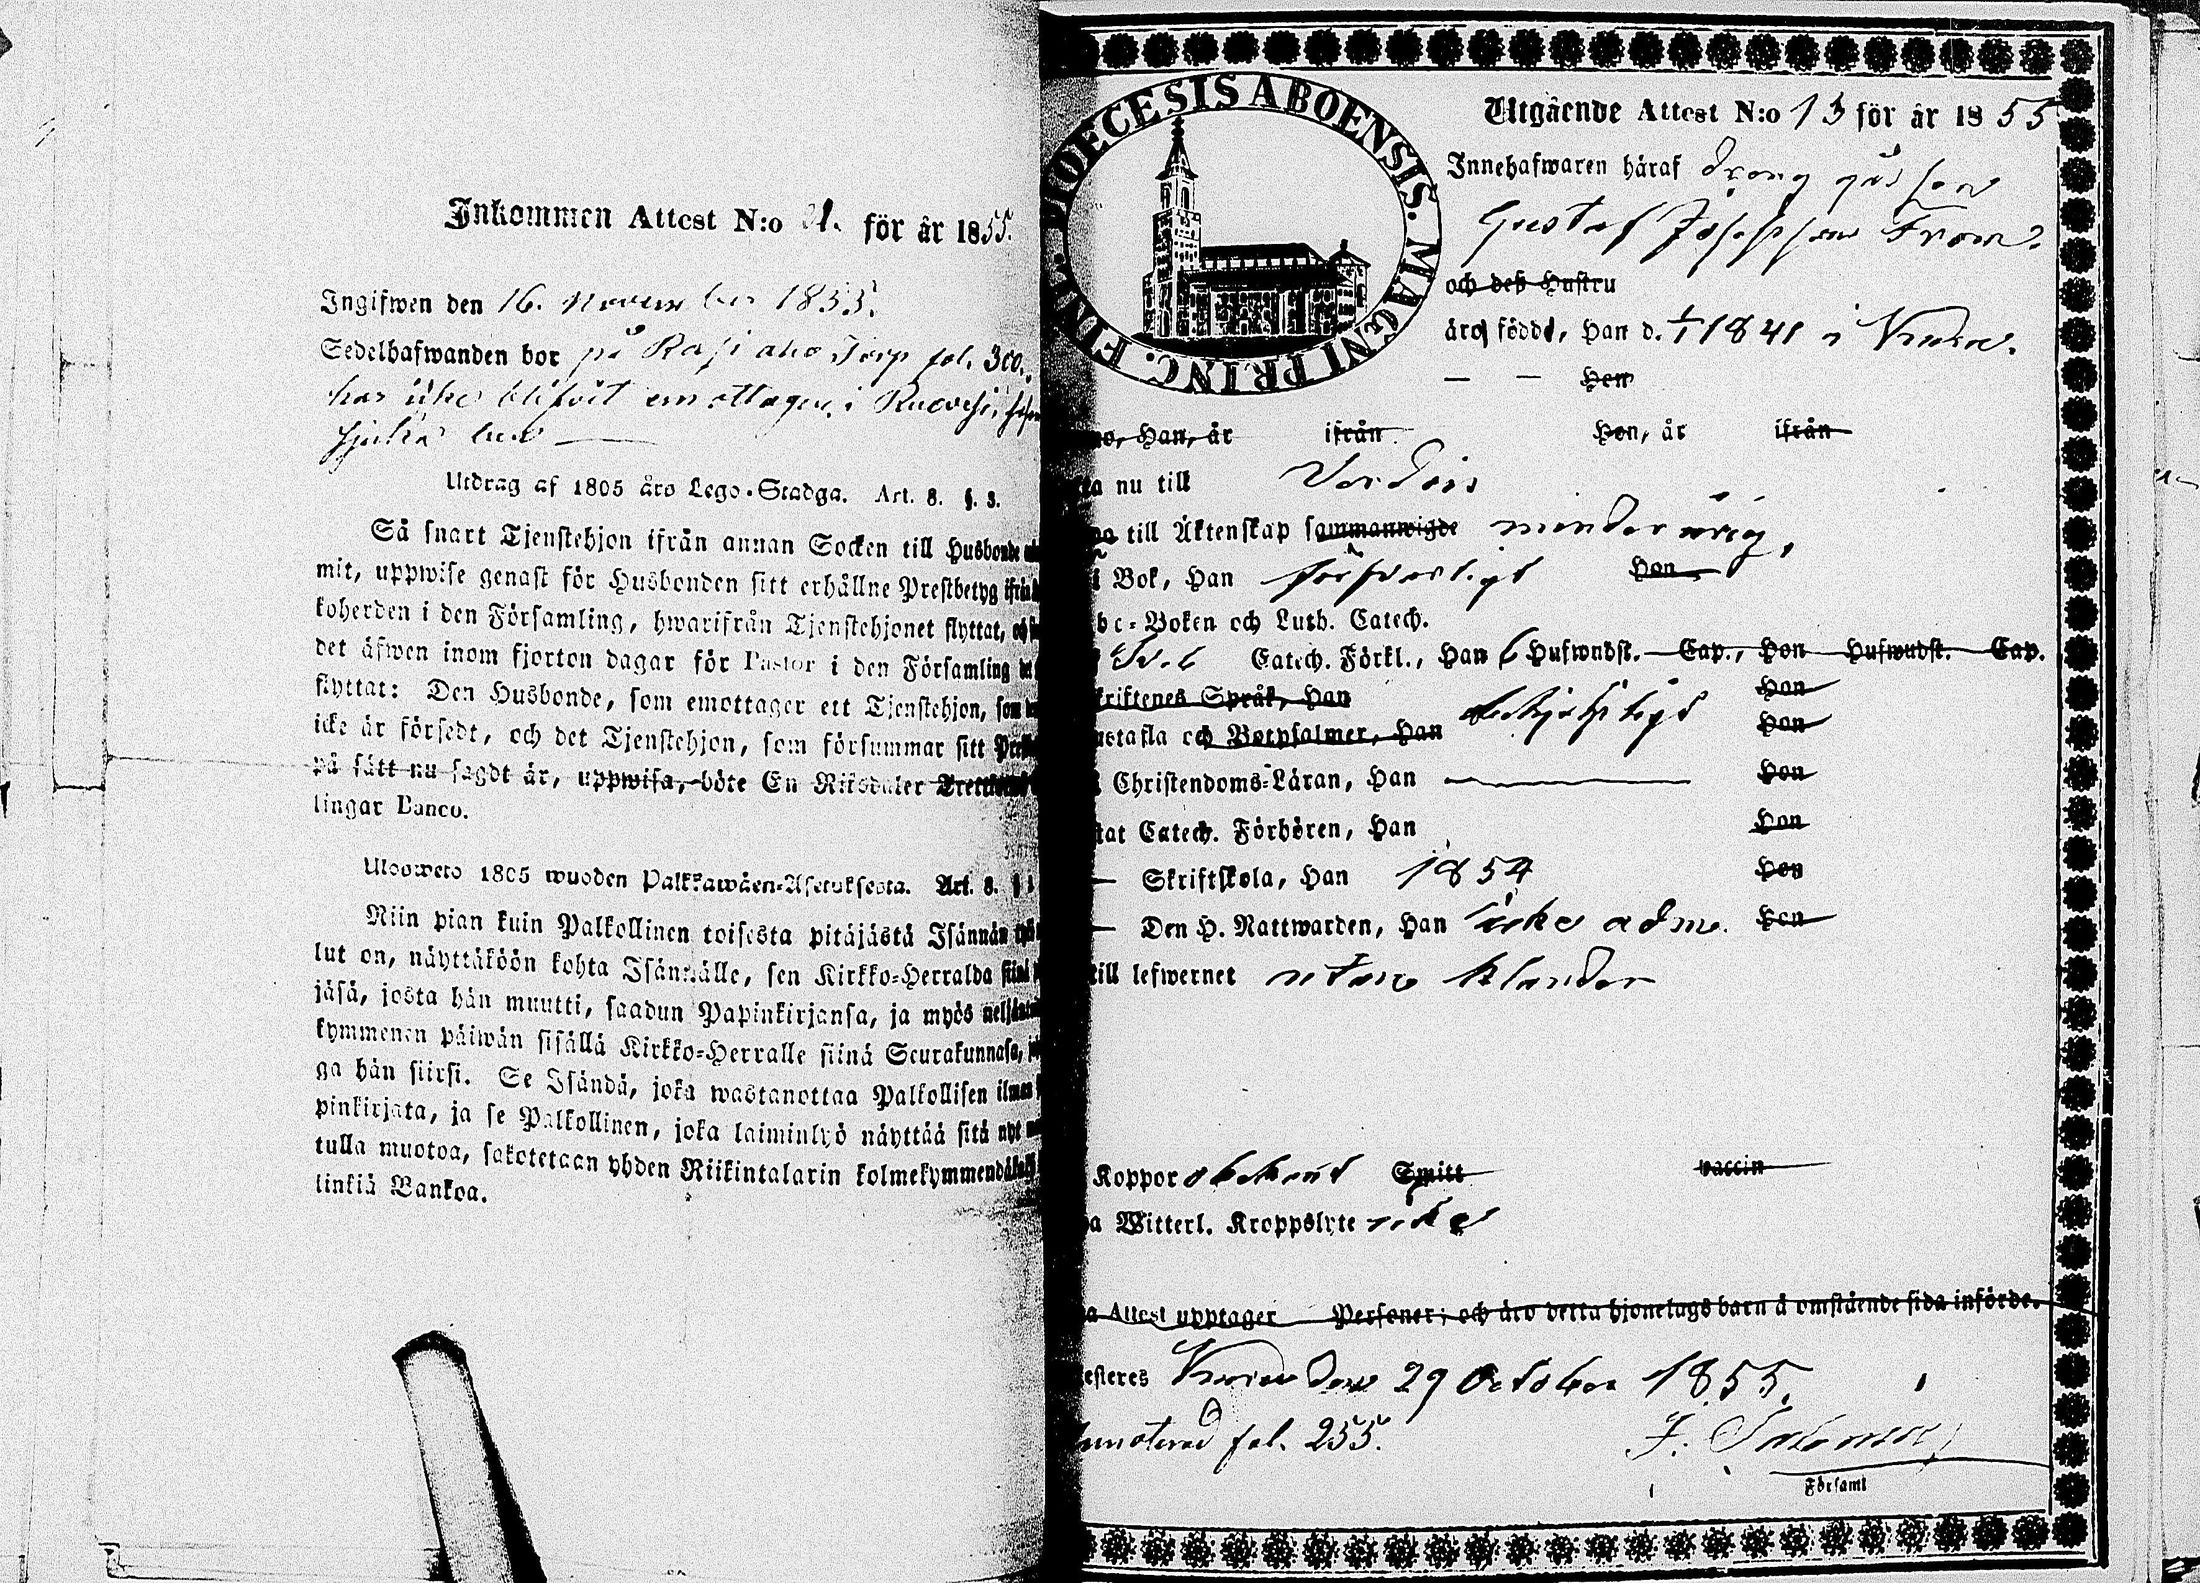 Inkommen Attest N:o 21. för år 1855.
Ingifwen den 16. November 1855.
Sedelhafwanden bor på Torp fol. 300.
har icke blifvit emottagen i Ruovesi
Utdrag af 1805 års Lego-Stadga. Art. 8. §. 3.
Så snart Tjenstehjon ifrån annan Socken till Husbonde
mit, uppwise genast för Husbonden sitt erhållne Prestbetyg ifrån
koherden i den Församling, hwarifrån Tjenstehjonet flyttat,
det äfwen inom fjorton dagar för Pastor i den Församling
flyttat: Den Husbonde, som emottager ett Tjenstehjon, som
icke är försedt, och det Tjenstehjon, som försummar sitt
på sätt nu sagdt är, uppwisa, böte En Riksdaler
lingar Banco.
Uloswero 1805 wuoden Palkkawäen-Asetuksesta. Art. 8.
Niin pian kuin Palkollinen toisesta pitäjästä Isännän
lut on, näyttäköön kohta Isännälle, sen Kirkko-Herralda
jäsä, josta hän muutti, saadun Papinkirjansa, ja myös
kymmenen päiwän sisällä Kirkko-Herralle siinä Seurakunnasa,
ga hän siirsi. Se Isändä, joka wastanottaa Palkollisen ilman
pinkirjata, ja se Palkollinen, joka laiminlyö näyttää sitä nyt
tulla muotoa, sakotetaan yhden Riikintalarin
linkiä Bankoa.
DIOECESIS ABOENSIS. MAGNI PRINC. FINL.
Utgående Attest N:o 13 för år 1855
Innehafwaren häraf Dreng gåssen
Gustaf Josephsson From
och deß Hustru
äro född, Han d. 1/1 1841 i Kuru.
Hon
Han, är ifrån Hon, är ifrån
nu till Vordois
till Äktenskap sammanwigde minderårig,
i Bok, Han försvarligt Hon
bc-Boken och Luth. Catech.
Catech. Förkl., Han 6 Hufwudst. Cap., Hon Hufwudst. Cap.
kriftenes Språk, Han Hon
ustafla och Botpsalmer, Han beskjedligt Hon
Christendoms-Läran, Han Hon
stat Catech. Förhören, Han Hon
Skriftskola, Han 1854 Hon
Den H. Nattwarden, Han icke adm. Hon
till lefwernet utan klander
Koppor obekant Smitt vaccin
Witterl. Kroppslyte icke
Attest upptager Personer; och äro detta hjonelags barn å omstående sida införde.
esteres Kuru den 29 October 1855.
Annoterad fol. 255.
Församl